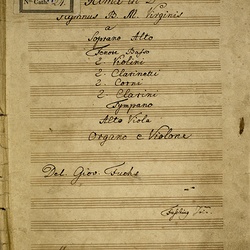 in D
B. M. Virginis
a
Soprano Alto
Tenore Basso
2. Violini
2. Clarinetti
2. Corni
2. Clarini
Tympano
Alto Viola
Organo e Violone
Del Giov. Fuchs